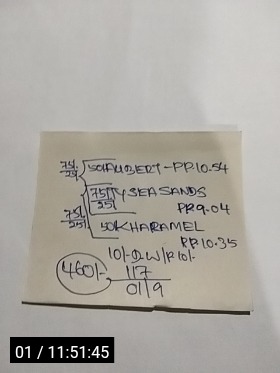 75/25 50HUBERT-PP.10.54
75/25 TYSEASANDS
PR9.04
75/25 50KHARAMEL
RR.10.35
10/-D.W/R10/-
460/- 117
01/9
01 / 11:51:45